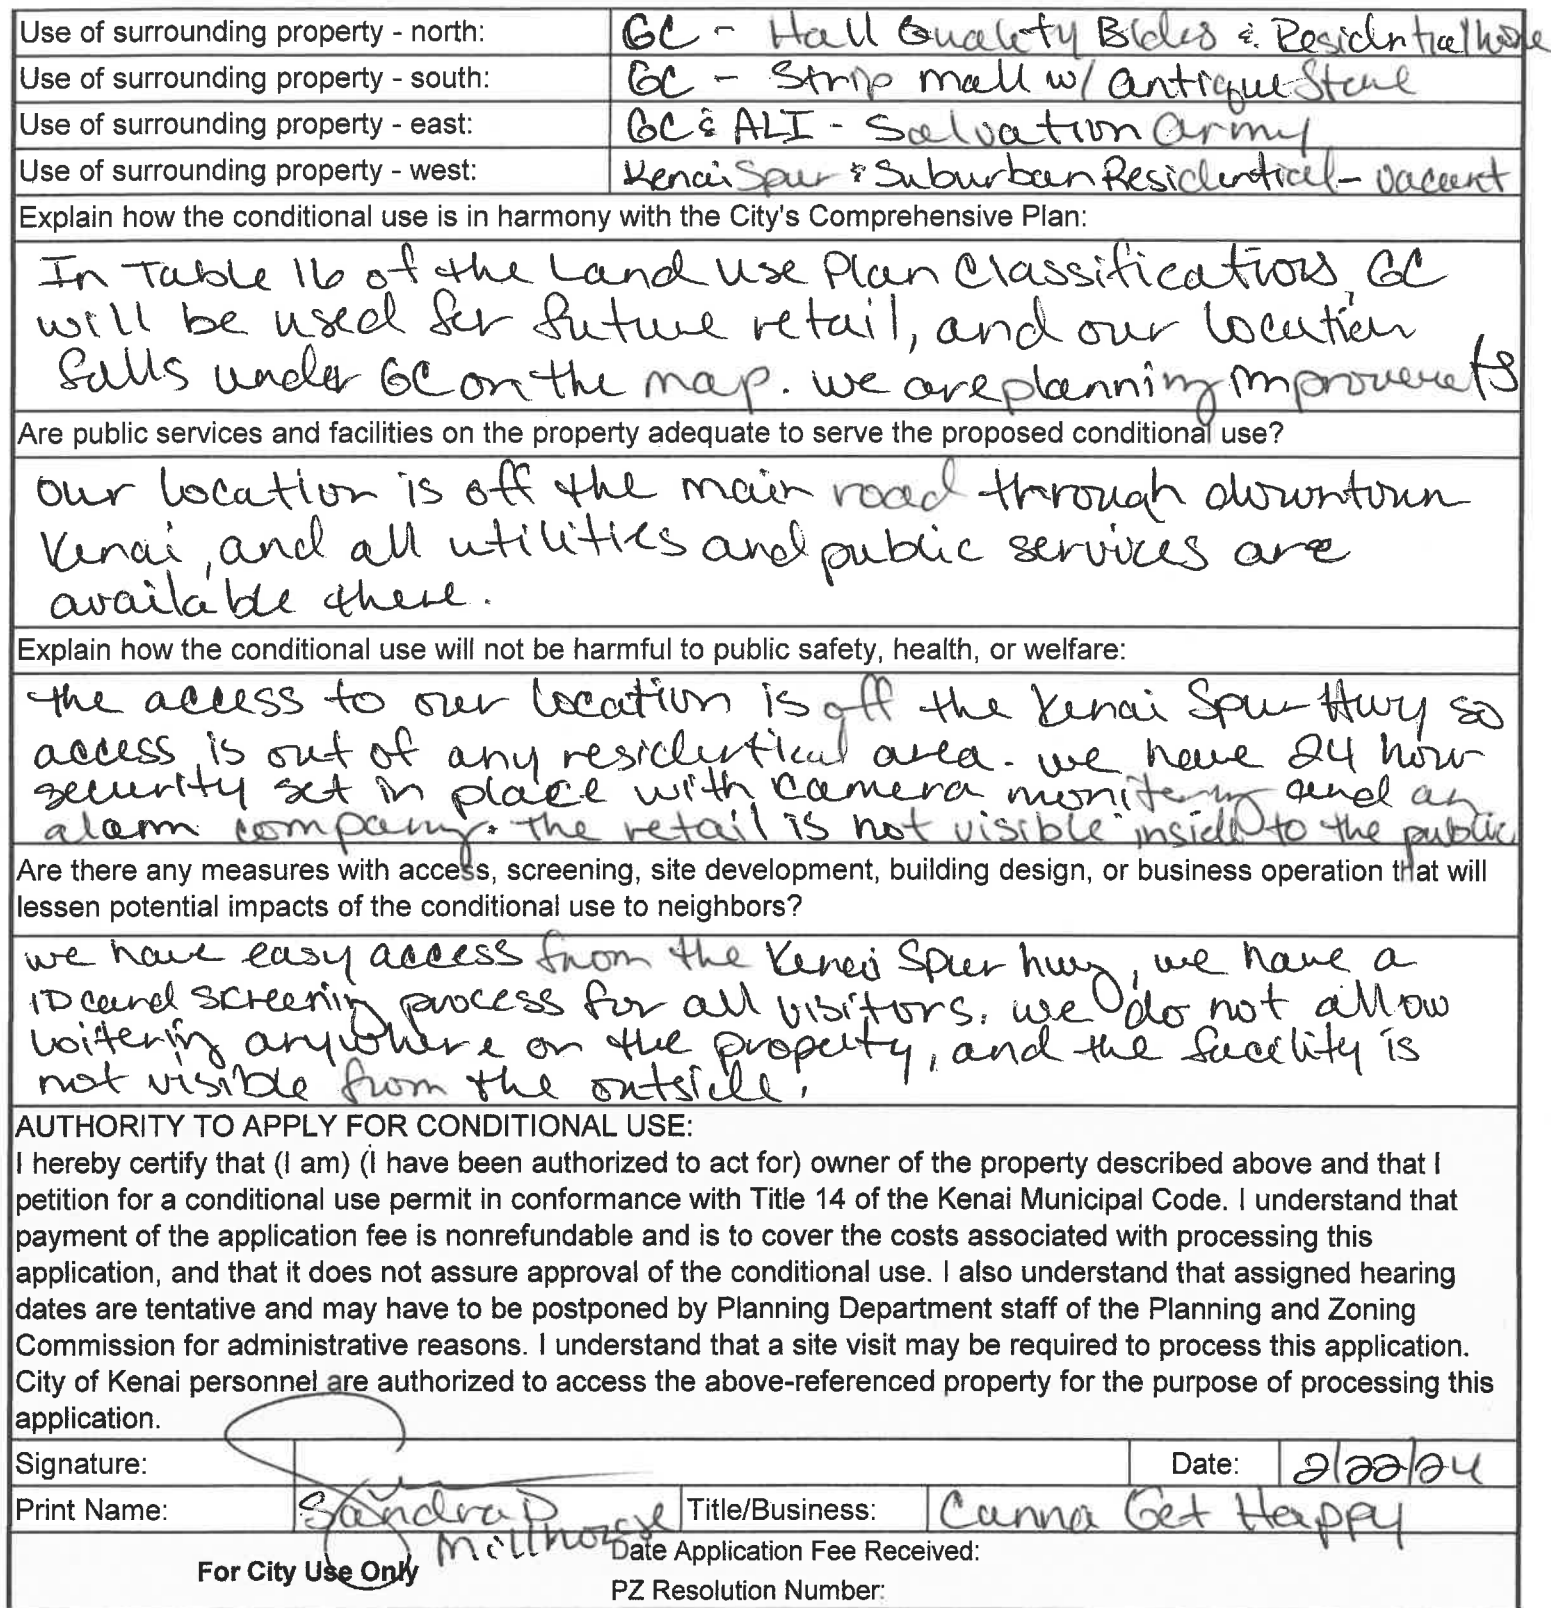 Use of surrounding property - north: GC - Hall Quality Bldrs & Residential home
Use of surrounding property - south: GC - Strip mall w/ Antique Store
Use of surrounding property - east: GC & ALI - Salvation Army
Use of surrounding property - west: Kenai Spur & Suburban Residential - vacant
Explain how the conditional use is in harmony with the City's Comprehensive Plan:
In Table 16 of the Land Use Plan Classifications, GC
will be used for future retail, and our location
falls under GC on the map. we are planning improvements
Are public services and facilities on the property adequate to serve the proposed conditional use?
Our location is off the main road through downtown
Kenai, and all utilities and public services are
available there.
Explain how the conditional use will not be harmful to public safety, health, or welfare:
the access to our location is off the Kenai Spur Hwy so
access is out of any residential area. we have 24 hour
security set in place with camera monitering and an
alarm company. the retail is not visible inside to the public
Are there any measures with access, screening, site development, building design, or business operation that will
lessen potential impacts of the conditional use to neighbors?
we have easy access from the Kenai Spur hwy, we have a
ID card screening process for all visitors. we do not allow
loitering anywhere on the property, and the facility is
not visible from the outside.
AUTHORITY TO APPLY FOR CONDITIONAL USE:
I hereby certify that (I am) (I have been authorized to act for) owner of the property described above and that I
petition for a conditional use permit in conformance with Title 14 of the Kenai Municipal Code. I understand that
payment of the application fee is nonrefundable and is to cover the costs associated with processing this
application, and that it does not assure approval of the conditional use. I also understand that assigned hearing
dates are tentative and may have to be postponed by Planning Department staff of the Planning and Zoning
Commission for administrative reasons. I understand that a site visit may be required to process this application.
City of Kenai personnel are authorized to access the above-referenced property for the purpose of processing this
application.
Signature: Date: 2/22/24
Print Name: Sandra D Millhouse Title/Business: Canna Get Happy
For City Use Only
Date Application Fee Received:
PZ Resolution Number: